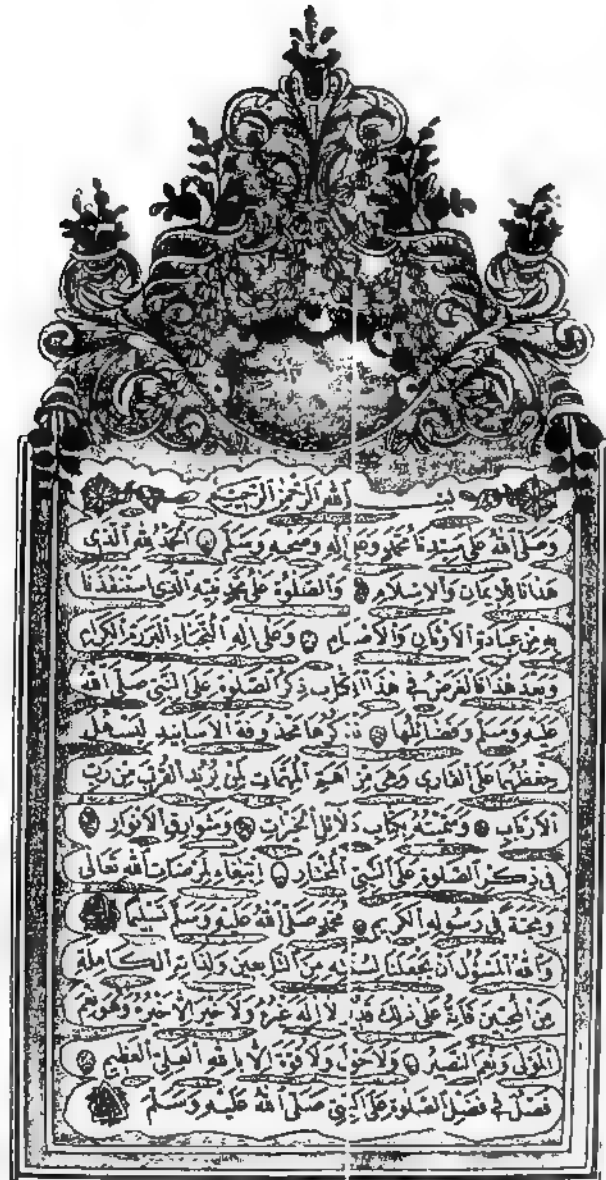 بسم الله الرحمن الرحيم
وَصَلَّى اللهُ عَلَى سَيِّدِنَا مُحَمَّدٍ وَعَلَى آلِهِ وَصَحْبِهِ وَسَلَّمَ اَلْحَمْدُ لِلّٰهِ الَّذِى
هَدَانَا لِلْاِيمَانِ وَالْاِسْلَامِ وَالصَّلٰوةُ عَلَى مُحَمَّدٍ نَبِيِّهِ الَّذِى اسْتَنْقَذَنَا
بِهِ مِنْ عِبَادَةِ الْاَوْثَانِ وَالْاَصْنَامِ وَعَلَى اٰلِهِ النُّجَبَاءِ الْبَرَرَةِ الْكِرَامِ
وَبَعْدَ هَذَا فَالْغَرَضُ فِى هَذَا الْكِتَابِ ذِكْرُ الصَّلٰوةِ عَلَى النَّبِىِّ صَلَّى اللهُ
عَلَيْهِ وَسَلَّمَ وَفَضَائِلُهَا نَذْكُرُهَا مَحْذُوفَةَ الْاَسَانِيدِ لِيَسْهُلَ
حِفْظُهَا عَلَى الْقَارِى وَهِىَ مِنْ اَهَمِّ الْمُهِمَّاتِ لِمَنْ يُرِيدُ الْقُرْبَ مِنْ رَبِّ
الْاَرْبَابِ وَسَمَّيْتُهُ بِكِتَابِ دَلَائِلِ الْخَيْرَاتِ وَشَوَارِقِ الْاَنْوَارِ
فِى ذِكْرِ الصَّلٰوةِ عَلَى النَّبِىِّ الْمُخْتَارِ اِبْتِغَاءً لِمَرْضَاتِ اللهِ تَعَالَى
وَمَحَبَّةً فِى رَسُولِهِ الْكَرِيمِ مُحَمَّدٍ صَلَّى اللهُ عَلَيْهِ وَسَلَّمَ تَسْلِيمًا
وَاللهُ الْمَسْؤُلُ اَنْ يَجْعَلَنَا لِسُنَّتِهِ مِنَ التَّابِعِينَ وَلِذَاتِهِ الْكَامِلَةِ
مِنَ الْمُحِبِّينَ فَاِنَّهُ عَلَى ذٰلِكَ قَدِيرٌ لَا اِلٰهَ غَيْرُهُ وَلَا خَيْرَ اِلَّا خَيْرُهُ وَهُوَ نِعْمَ
الْمَوْلٰى وَنِعْمَ النَّصِيرُ وَلَا حَوْلَ وَلَا قُوَّةَ اِلَّا بِاللهِ الْعَلِىِّ الْعَظِيمِ
فَصْلٌ فِى فَضْلِ الصَّلٰوةِ عَلَى النَّبِىِّ صَلَّى اللهُ عَلَيْهِ وَسَلَّمَ